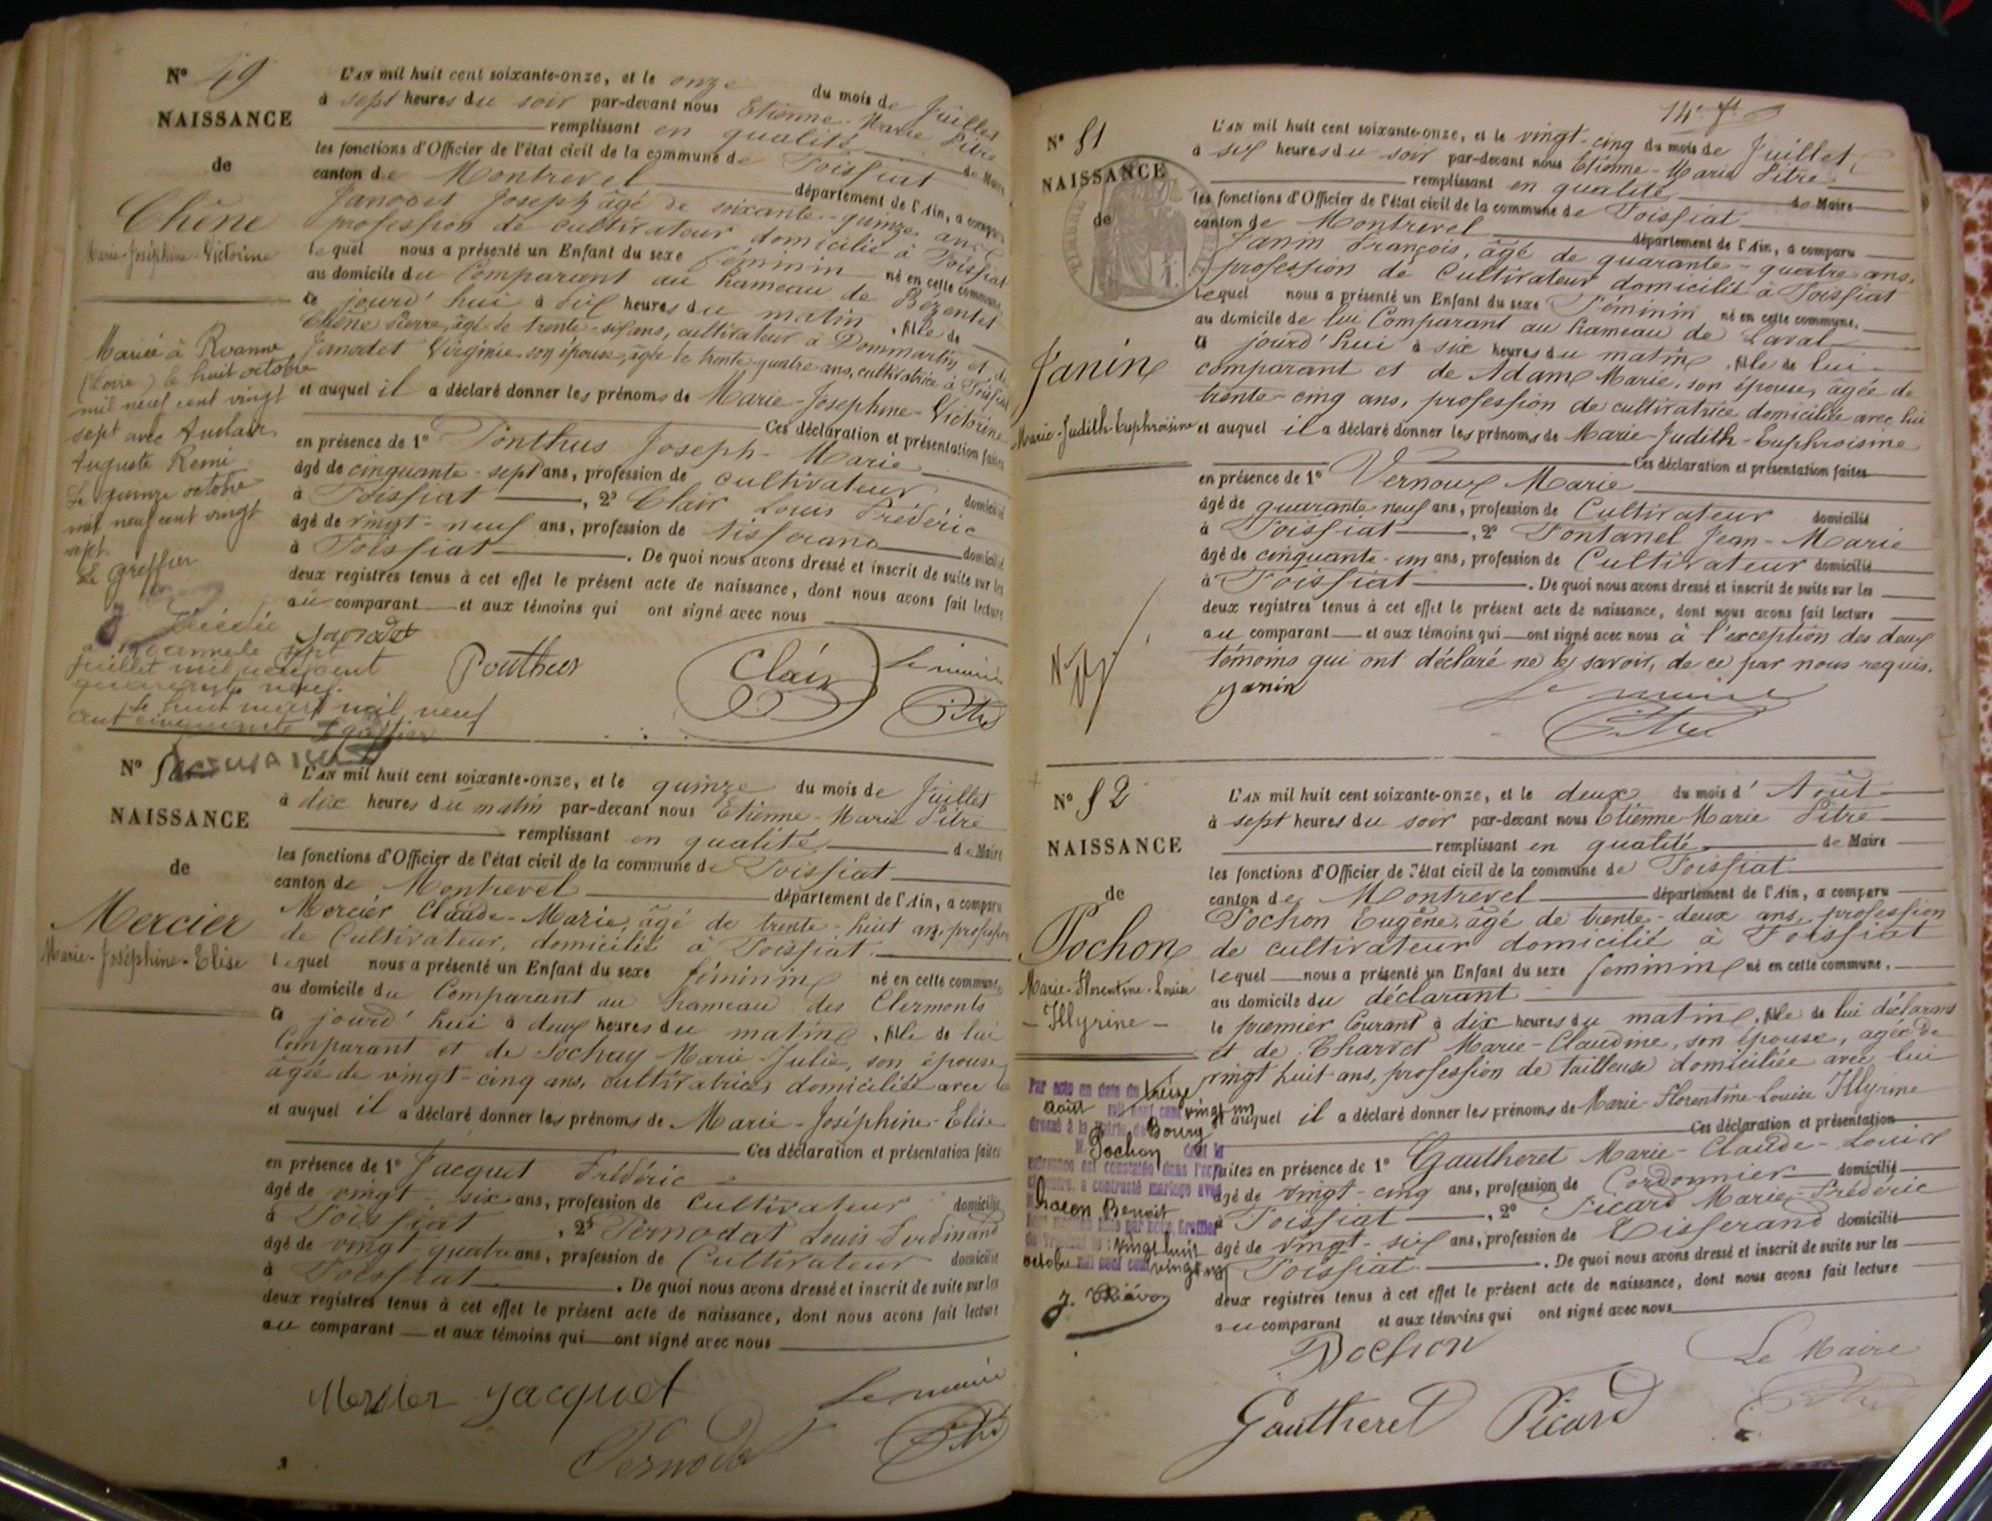 N° 49
NAISSANCE
de
Chêne
Marie-Joséphine-Victorine
Mariée à Roanne
(Loire) le huit octobre
mil neuf cent vingt
sept avec Auclair
Auguste Remi
Le quinze octobre
mil neuf cent vingt
sept
Le Greffier
Décédée
à Roanne le sept
juillet mil neuf cent
quarante neuf.
Le huit mars mil neuf
cent cinquante Le greffier
L'AN mil huit cent soixante-onze, et le onze du mois de Juillet
à sept heures du soir par-devant nous Etienne-Marie Pitre
remplissant en qualité de Maire
les fonctions d'Officier de l'état civil de la commune de Foissiat
canton de Montrevel département de l'Ain, a comparu
Janodet Joseph âgé de soixante-quinze ans
profession de cultivateur domicilié à Foissiat
lequel nous a présenté un Enfant du sexe féminin né en cette commune
au domicile du Comparant au hameau de Bézentet
ce jourd'hui à six heures du matin, fille de
Chêne Pierre, âgé de trente-six ans, cultivateur à Dommartin et de
Janodet Virginie son épouse, âgée de trente quatre ans, cultivatrice à Foissiat
et auquel il a déclaré donner les prénoms de Marie-Joséphine-Victorine
Ces déclaration et présentation faites
en présence de 1° Ponthus Joseph-Marie
âgé de cinquante-sept ans, profession de cultivateur domicilié
à Foissiat, 2° Clair Louis Frédéric
âgé de vingt-neuf ans, profession de tisserand domicilié
à Foissiat. De quoi nous avons dressé et inscrit de suite sur les
deux registres tenus à cet effet le présent acte de naissance, dont nous avons fait lecture
au comparant et aux témoins qui ont signé avec nous
Janodet Ponthus Clair Le maire
Pitre
N°
NAISSANCE
de
Mercier
Marie-Joséphine-Elise
L'AN mil huit cent soixante-onze, et le quinze du mois de Juillet
à dix heures du matin par-devant nous Etienne-Marie Pitre
remplissant en qualité de Maire
les fonctions d'Officier de l'état civil de la commune de Foissiat
canton de Montrevel département de l'Ain, a comparu
Mercier Claude-Marie, âgé de trente-huit ans, profession
de Cultivateur, domicilié à Foissiat.
lequel nous a présenté un Enfant du sexe féminin né en cette commune,
au domicile du Comparant au hameau des Clermonts
ce jourd'hui à deux heures du matin, fille de lui
Comparant et de Sochay Marie-Julie, son épouse,
âgée de vingt-cinq ans, cultivatrice, domiciliée avec lui
et auquel il a déclaré donner les prénoms de Marie-Joséphine-Elise
Ces déclaration et présentation faites
en présence de 1° Jacquet Frédéric
âgé de vingt-six ans, profession de Cultivateur domicilié
à Foissiat, 2° Pernodat Louis Ferdinand
âgé de vingt-quatre ans, profession de Cultivateur domicilié
à Foissiat. De quoi nous avons dressé et inscrit de suite sur les
deux registres tenus à cet effet le présent acte de naissance, dont nous avons fait lecture
au comparant et aux témoins qui ont signé avec nous
Mercier Jacquet Le maire
Pernodat Pitre
14e ft
N° 51
NAISSANCE
de
Janin
Marie-Judith-Euphroisine
L'AN mil huit cent soixante-onze, et le vingt-cinq du mois de Juillet
à six heures du soir par-devant nous Etienne-Marie Pitre
remplissant en qualité de Maire
les fonctions d'Officier de l'état civil de la commune de Foissiat
canton de Montrevel département de l'Ain, a comparu
Janin François, âgé de quarante-quatre ans,
profession de Cultivateur domicilié à Foissiat
lequel nous a présenté un Enfant du sexe Féminin né en cette commune,
au domicile de lui Comparant au hameau de Laval
ce jourd'hui à six heures du matin, fille de lui
comparant et de Adam Marie, son épouse, âgée de
trente-cinq ans, profession de cultivatrice domiciliée avec lui
et auquel il a déclaré donner les prénoms de Marie-Judith-Euphroisine
Ces déclaration et présentation faites
en présence de 1° Vernoux Marie
âgé de quarante neuf ans, profession de Cultivateur domicilié
à Foissiat, 2° Fontanel Jean-Marie
âgé de cinquante-un ans, profession de Cultivateur domicilié
à Foissiat. De quoi nous avons dressé et inscrit de suite sur les
deux registres tenus à cet effet le présent acte de naissance, dont nous avons fait lecture
au comparant et aux témoins qui ont signé avec nous à l'exception des deux
témoins qui ont déclaré ne le savoir, de ce par nous requis.
Janin Le maire
Pitre
N° 52
NAISSANCE
de
Pochon
Marie-Florentine-Louise
-Illyrine-
Par acte en date du treize
août mil neuf cent vingt un
dressé à la Mairie de Bourg
M Pochon dont la
naissance est constatée dans l'acte
ci-contre, a contracté mariage avec
Chacon Benoit
vingt huit
octobre mil neuf cent vingt un
L'AN mil huit cent soixante-onze, et le deux du mois d'Août
à sept heures du soir par-devant nous Etienne Marie Pitre
remplissant en qualité de Maire
les fonctions d'Officier de l'état civil de la commune de Foissiat
canton de Montrevel département de l'Ain, a comparu
Pochon Eugène, âgé de trente-deux ans, profession
de cultivateur domicilié à Foissiat
lequel nous a présenté un Enfant du sexe féminin né en cette commune,
au domicile du déclarant
le premier Courant à dix heures du matin, fille de lui déclarant
et de Charvet Marie-Claudine, son épouse, âgée de
vingt huit ans, profession de tailleuse domiciliée avec lui
et auquel il a déclaré donner les prénoms de Marie-Florentine-Louise Illyrine
Ces déclaration et présentation
faites en présence de 1° Gautheret Marie-Claude-Louis
âgé de vingt-cinq ans, profession de Cordonnier domicilié
à Foissiat, 2° Picard Marie-Frédéric
âgé de vingt-six ans, profession de Tisserand domicilié
à Foissiat. De quoi nous avons dressé et inscrit de suite sur les
deux registres tenus à cet effet le présent acte de naissance, dont nous avons fait lecture
au comparant et aux témoins qui ont signé avec nous
Pochon Le Maire
Gautheret Picard Pitre